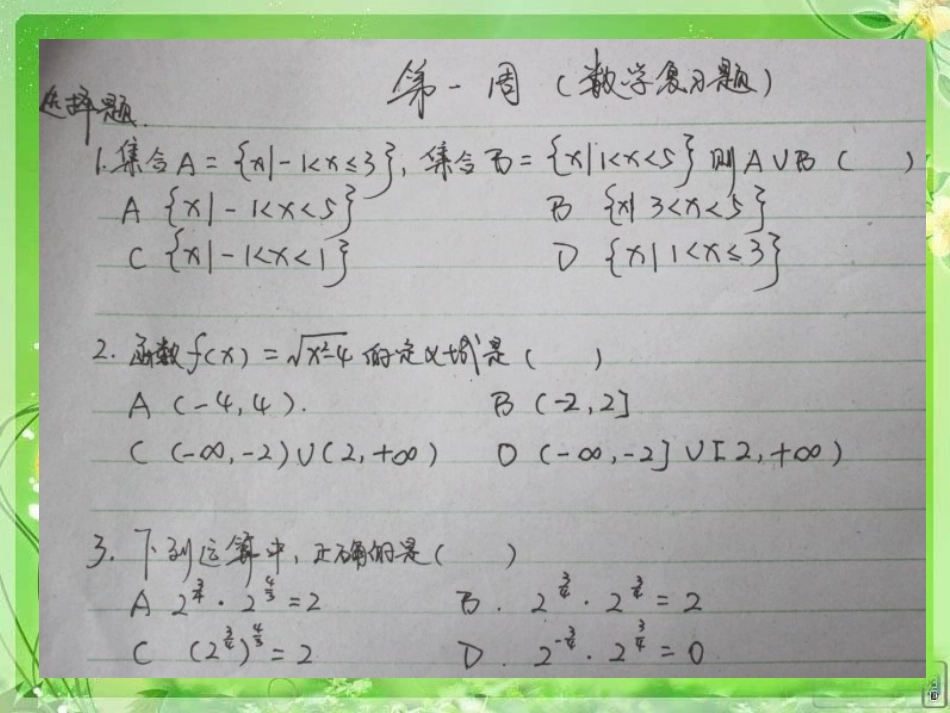 第一周（数学复习题）
选择题.
1.集合A={x|-1<x≤3},集合B={x|1<x<5}则A∪B（ ）
A {x|-1<x<5} B {x|3<x<5}
C {x|-1<x<1} D {x|1<x≤3}
2.函数f(x)=√x²-4的定义域是（ ）
A (-4,4). B (-2,2]
C (-∞,-2)∪(2,+∞) D (-∞,-2]∪[2,+∞)
3.下列运算中,正确的是（ ）
A 2^{3/4}·2^{4/3}=2 B. 2^{3/4}·2^{3/4}=2
C (2^{3/4})^{4/3}=2 D. 2^{-3/4}·2^{3/4}=0